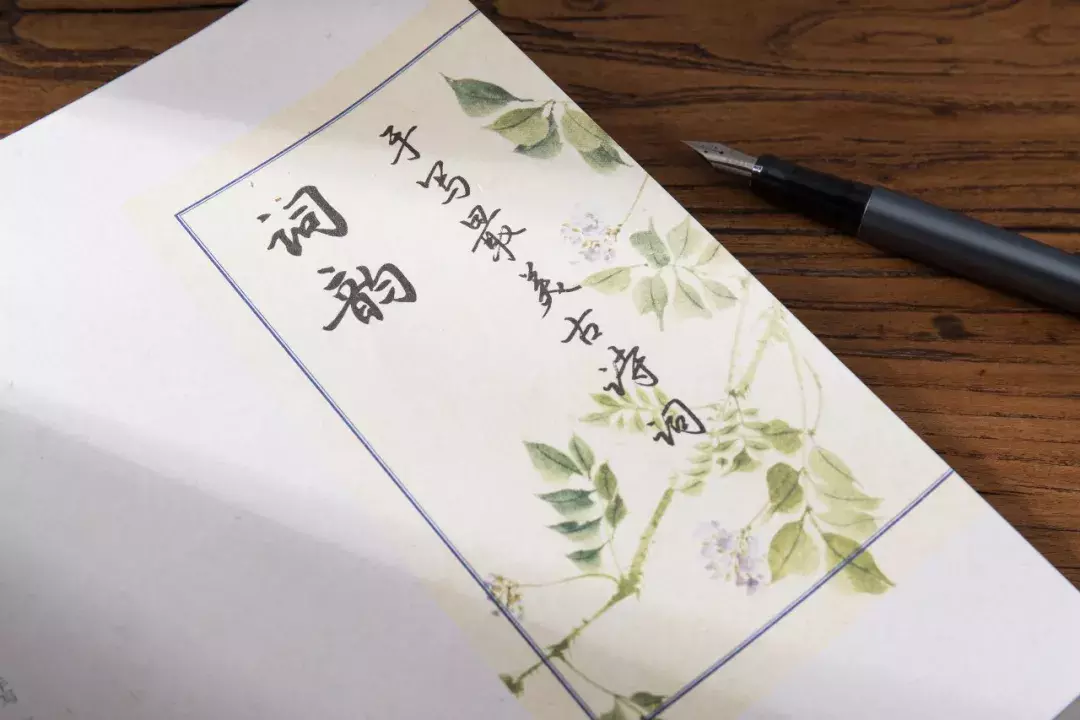 手写最美古诗词
词韵